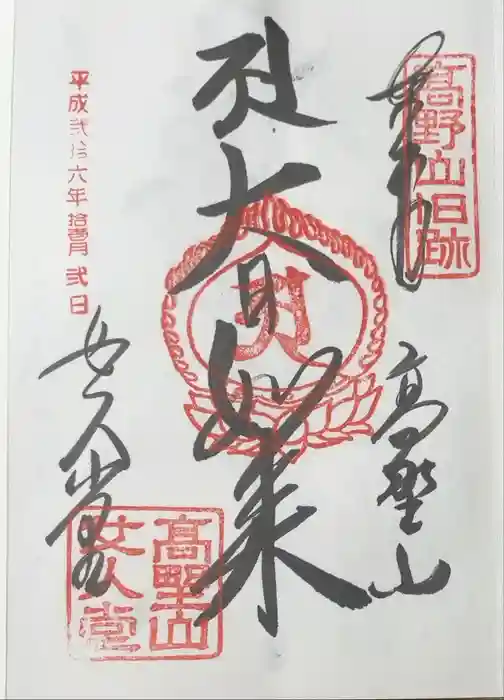 高野山旧跡
高埜山
大日如来
平成弐拾六年拾壹月弐日
女人堂
高埜山
女人堂